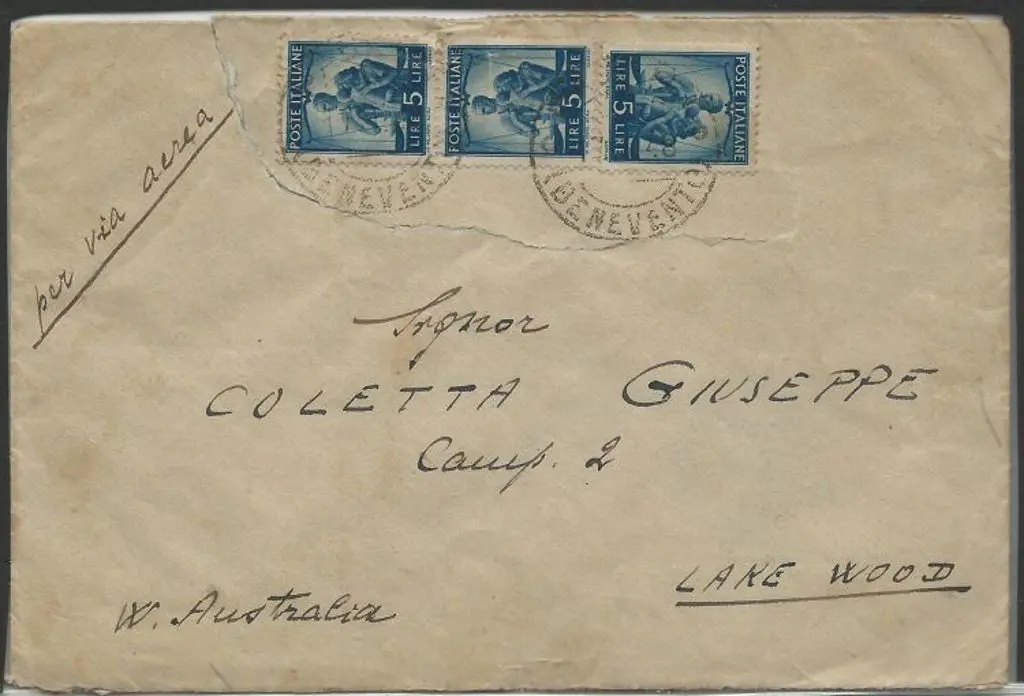 POSTE ITALIANE
LIRE 5 LIRE
POSTE ITALIANE
LIRE 5 LIRE
POSTE ITALIANE
LIRE 5 LIRE
BENEVENTO
BENEVENTO
per via aerea
Signor
COLETTA GIUSEPPE
Camp. 2
LAKE WOOD
W. Australia